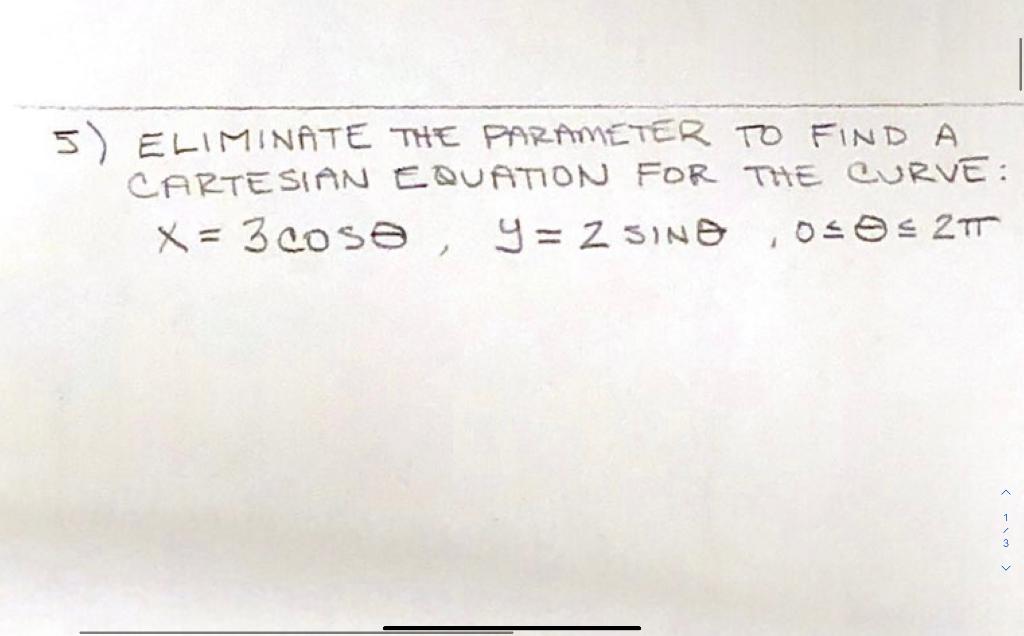 5) ELIMINATE THE PARAMETER TO FIND A
CARTESIAN EQUATION FOR THE CURVE:
X = 3 cos θ , y = 2 SIN θ , 0 ≤ θ ≤ 2π
1
/
3